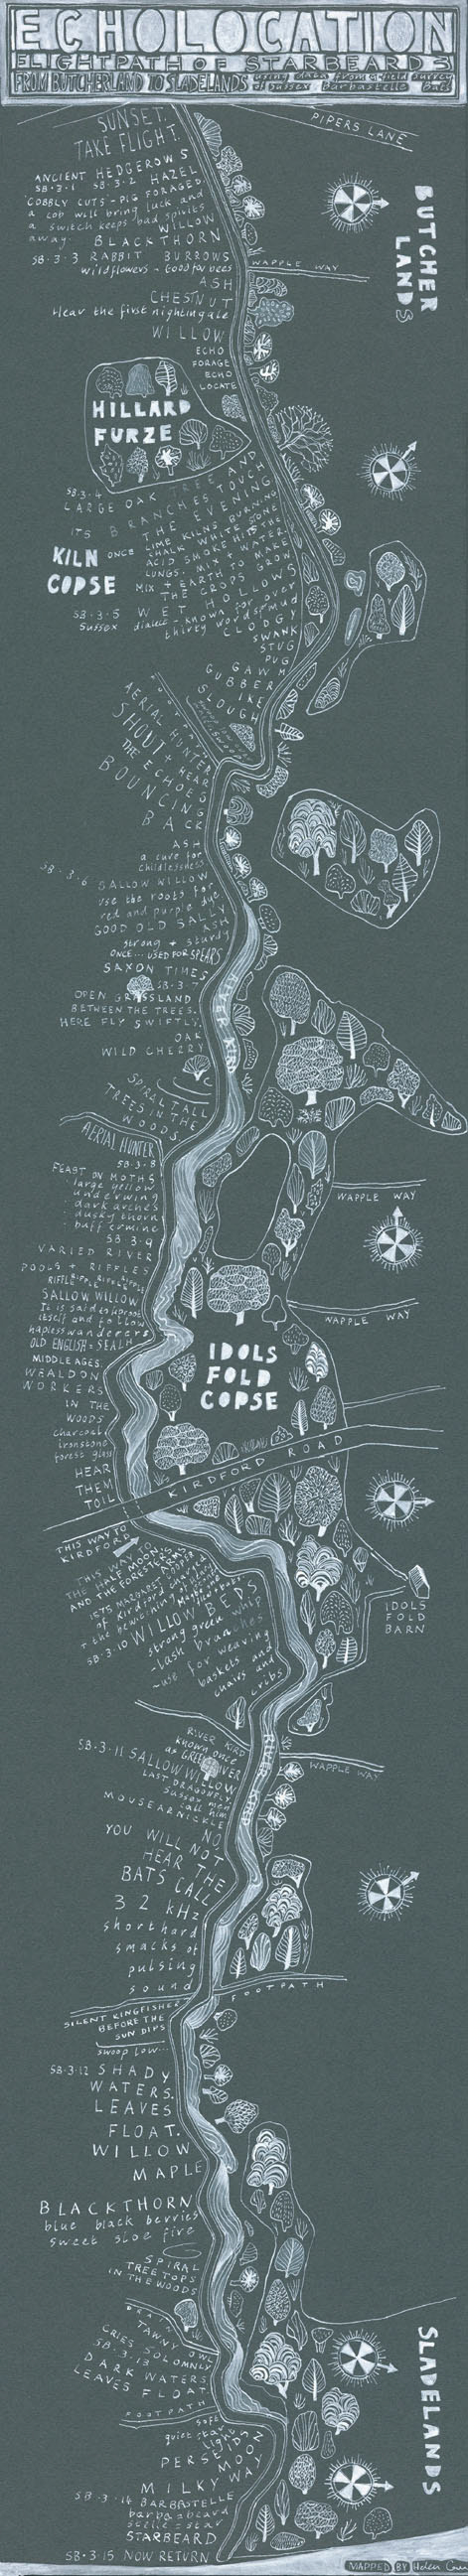 ECHOLOCATION
FLIGHTPATH OF STARBEARDS
FROM BUTCHERLAND TO SLADELANDS using data from a field survey
of Sussex Barbastelle Bats
PIPERS LANE
BUTCHER
LANDS
SUNSET.
TAKE FLIGHT.
ANCIENT HEDGEROWS
SB·3·1 SB·3·2 HAZEL
COBBLY CUTS - PIG FORAGED.
a cob will bring luck and
a switch keeps bad spirits
away. WILLOW
BLACKTHORN
SB·3·3 RABBIT BURROWS
wildflowers - Good for bees
WAPPLE WAY
ASH
CHESTNUT
Hear the first nightingale
WILLOW
ECHO
FORAGE
ECHO
LOCATE
HILLARD
FURZE
SB·3·4
LARGE OAK TREE AND
ITS BRANCHES TOUCH
THE EVENING
KILN
COPSE
ONCE LIME KILNS BURNING
CHALK WHITE STONE
ACID SMOKE
LUNGS. MIX WATER
MIX + EARTH TO MAKE
THE CROPS GROW
SB·3·5 WET HOLLOWS
Sussex dialect - known for over
thirty words for mud
CLODGY
SWANK
STUG
PUG
GAWM
GUBBER
IKE
SLOUGH
FOOTPATH
AERIAL HUNTER
SHOUT + HEAR
THE ECHOES
BOUNCING
BACK
ASH
a cure for
childlessness
SB·3·6 SALLOW WILLOW
use the roots for
red and purple dye
GOOD OLD SALLY
ASH
strong + sturdy
ONCE... USED FOR SPEARS
SAXON TIMES
SB·3·7
OPEN GRASSLAND
BETWEEN THE TREES.
HERE FLY SWIFTLY.
OAK
WILD CHERRY
RIVER KIRD
SPIRAL TALL
TREES IN THE
WOODS.
AERIAL HUNTER
SB·3·8
FEAST ON MOTHS
large yellow
underwing
dark arches
dusky thorn
buff ermine
SB·3·9
VARIED RIVER
POOLS + RIFFLES
RIFFLE RIPPLE RIFFLE RIPPLE
SALLOW WILLOW
It is said to uproot
itself and follow
hapless wanderers
OLD ENGLISH = SEALH
MIDDLE AGES.
WEALDON
WORKERS
IN THE
WOODS
charcoal
ironstone
forest glass
HEAR
THEM
TOIL
WAPPLE WAY
WAPPLE WAY
IDOLS
FOLD
COPSE
KIRDFORD ROAD
THIS WAY TO
KIRDFORD
THIS WAY TO
THE HALF MOON
AND THE FORESTERS ARMS
1575 MARGARET COOPER
of Kirdford charged
+ the bewitching of
SB·3·10 WILLOW BEDS
strong green whip
- lash branches
- use for weaving
baskets and
chairs and
cribs
IDOLS
FOLD
BARN
RIVER KIRD
known once
as GREEN RIVER
SB·3·11 SALLOW WILLOW
LAST DRAGONFLY
Sussex men
call him
MOUSEARNICKLE
RIVER KIRD
WAPPLE WAY
NO
YOU WILL NOT
HEAR THE
BATS CALL
32 kHz
short hard
smacks of
pulsing
sound
FOOTPATH
SILENT KINGFISHER
BEFORE THE
SUN DIPS
swoop low...
SB·3·12 SHADY
WATERS.
LEAVES
FLOAT.
WILLOW
MAPLE
BLACKTHORN
blue black berries
sweet sloe fire
SPIRAL
TREE TOPS
IN THE WOODS
DRAIN
TAWNY OWL
CRIES SOLOMNLY
SB·3·13
DARK WATERS
LEAVES FLOAT.
FOOTPATH
SLADELANDS
soft
quiet star
light
PERSEIDS
MOON
MILKY WAY
SB·3·14 BARBASTELLE
barba = beard
stelle = star
STARBEARD
SB·3·15 NOW RETURN
MAPPED BY Helen